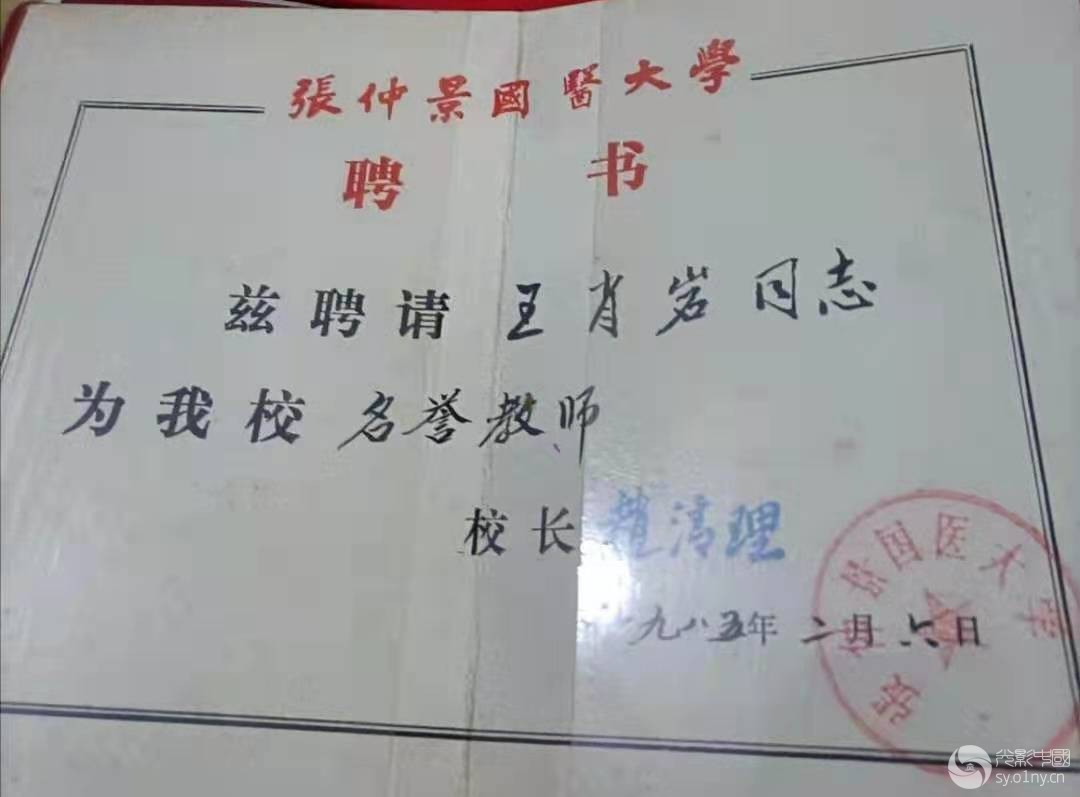 張仲景國醫大學
聘书
兹聘请王肖岩同志
为我校名誉教师
校长趙清理
一九八五年二月六日
张仲景国医大学
光影中國
sy.o1ny.cn